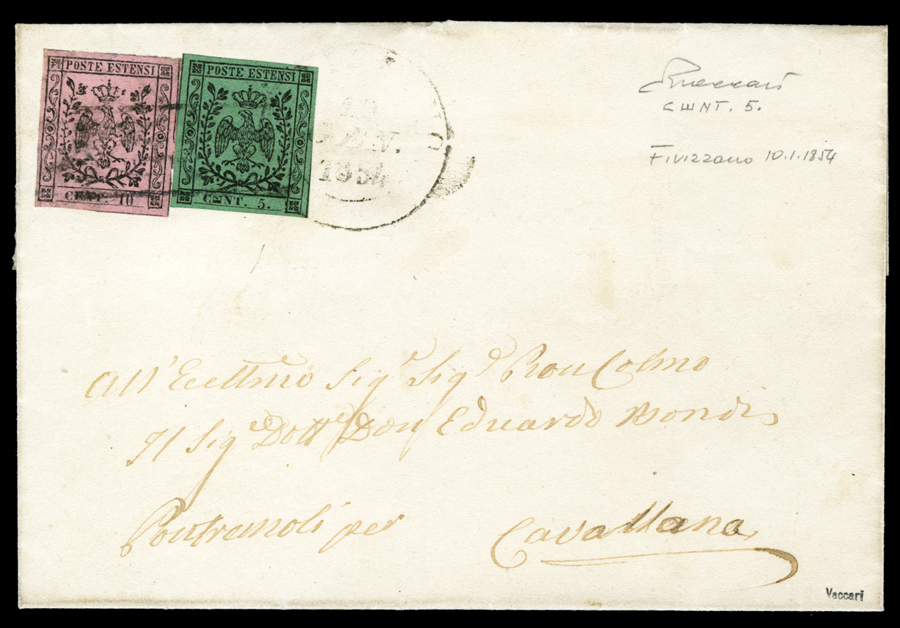 POSTE ESTENSI
CENT. 10
POSTE ESTENSI
CENT. 5.
10
1854
Vaccari
CWNT. 5.
Fivizzano 10.1.1854
All' Sigr Sigr
Il Sigr Dottr Don Eduardo Bondi
Pontremoli per Cavallana
Vaccari